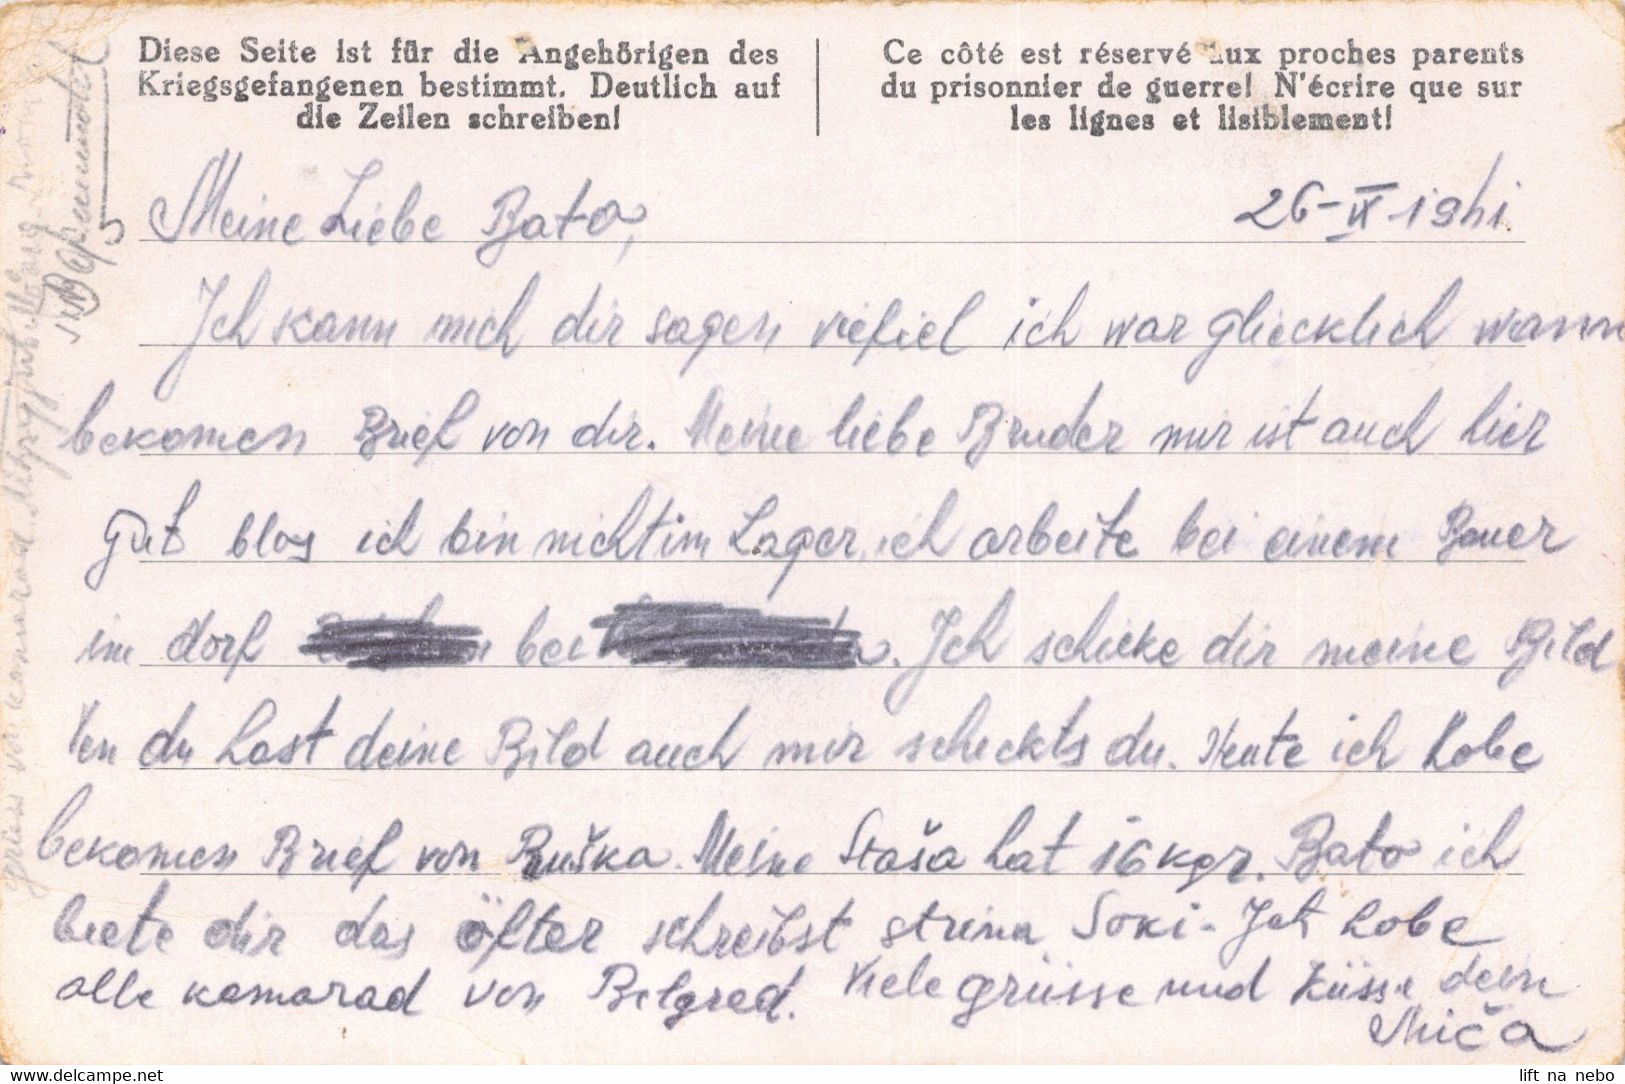 Diese Seite ist für die Angehörigen des
Kriegsgefangenen bestimmt. Deutlich auf
die Zeilen schreiben!
Ce côté est réservé aux proches parents
du prisonnier de guerre! N'écrire que sur
les lignes et lisiblement!
26-IX-1941
Meine Liebe Bato,
Ich kann mich dir sagen viefiel ich war gliecklich wann
bekomen Brief von dir. Meine liebe Bruder mir ist auch hier
gut blos ich bin nicht im Lager, ich arbeite bei einem Bauer
im dorf bei . Ich schicke dir meine Bild
ven du hast deine Bild auch mir scheckts du. Heute ich habe
bekomen Brief von Ruška. Meine Staša hat 16 kgr. Bato ich
biete dir das öfter schreibst strina Soki. Ich habe
alle kamarad von Belgrad. Viele grüsse und Küsse dein
Mića
grüss von komarad
lift na nebo
www.delcampe.net